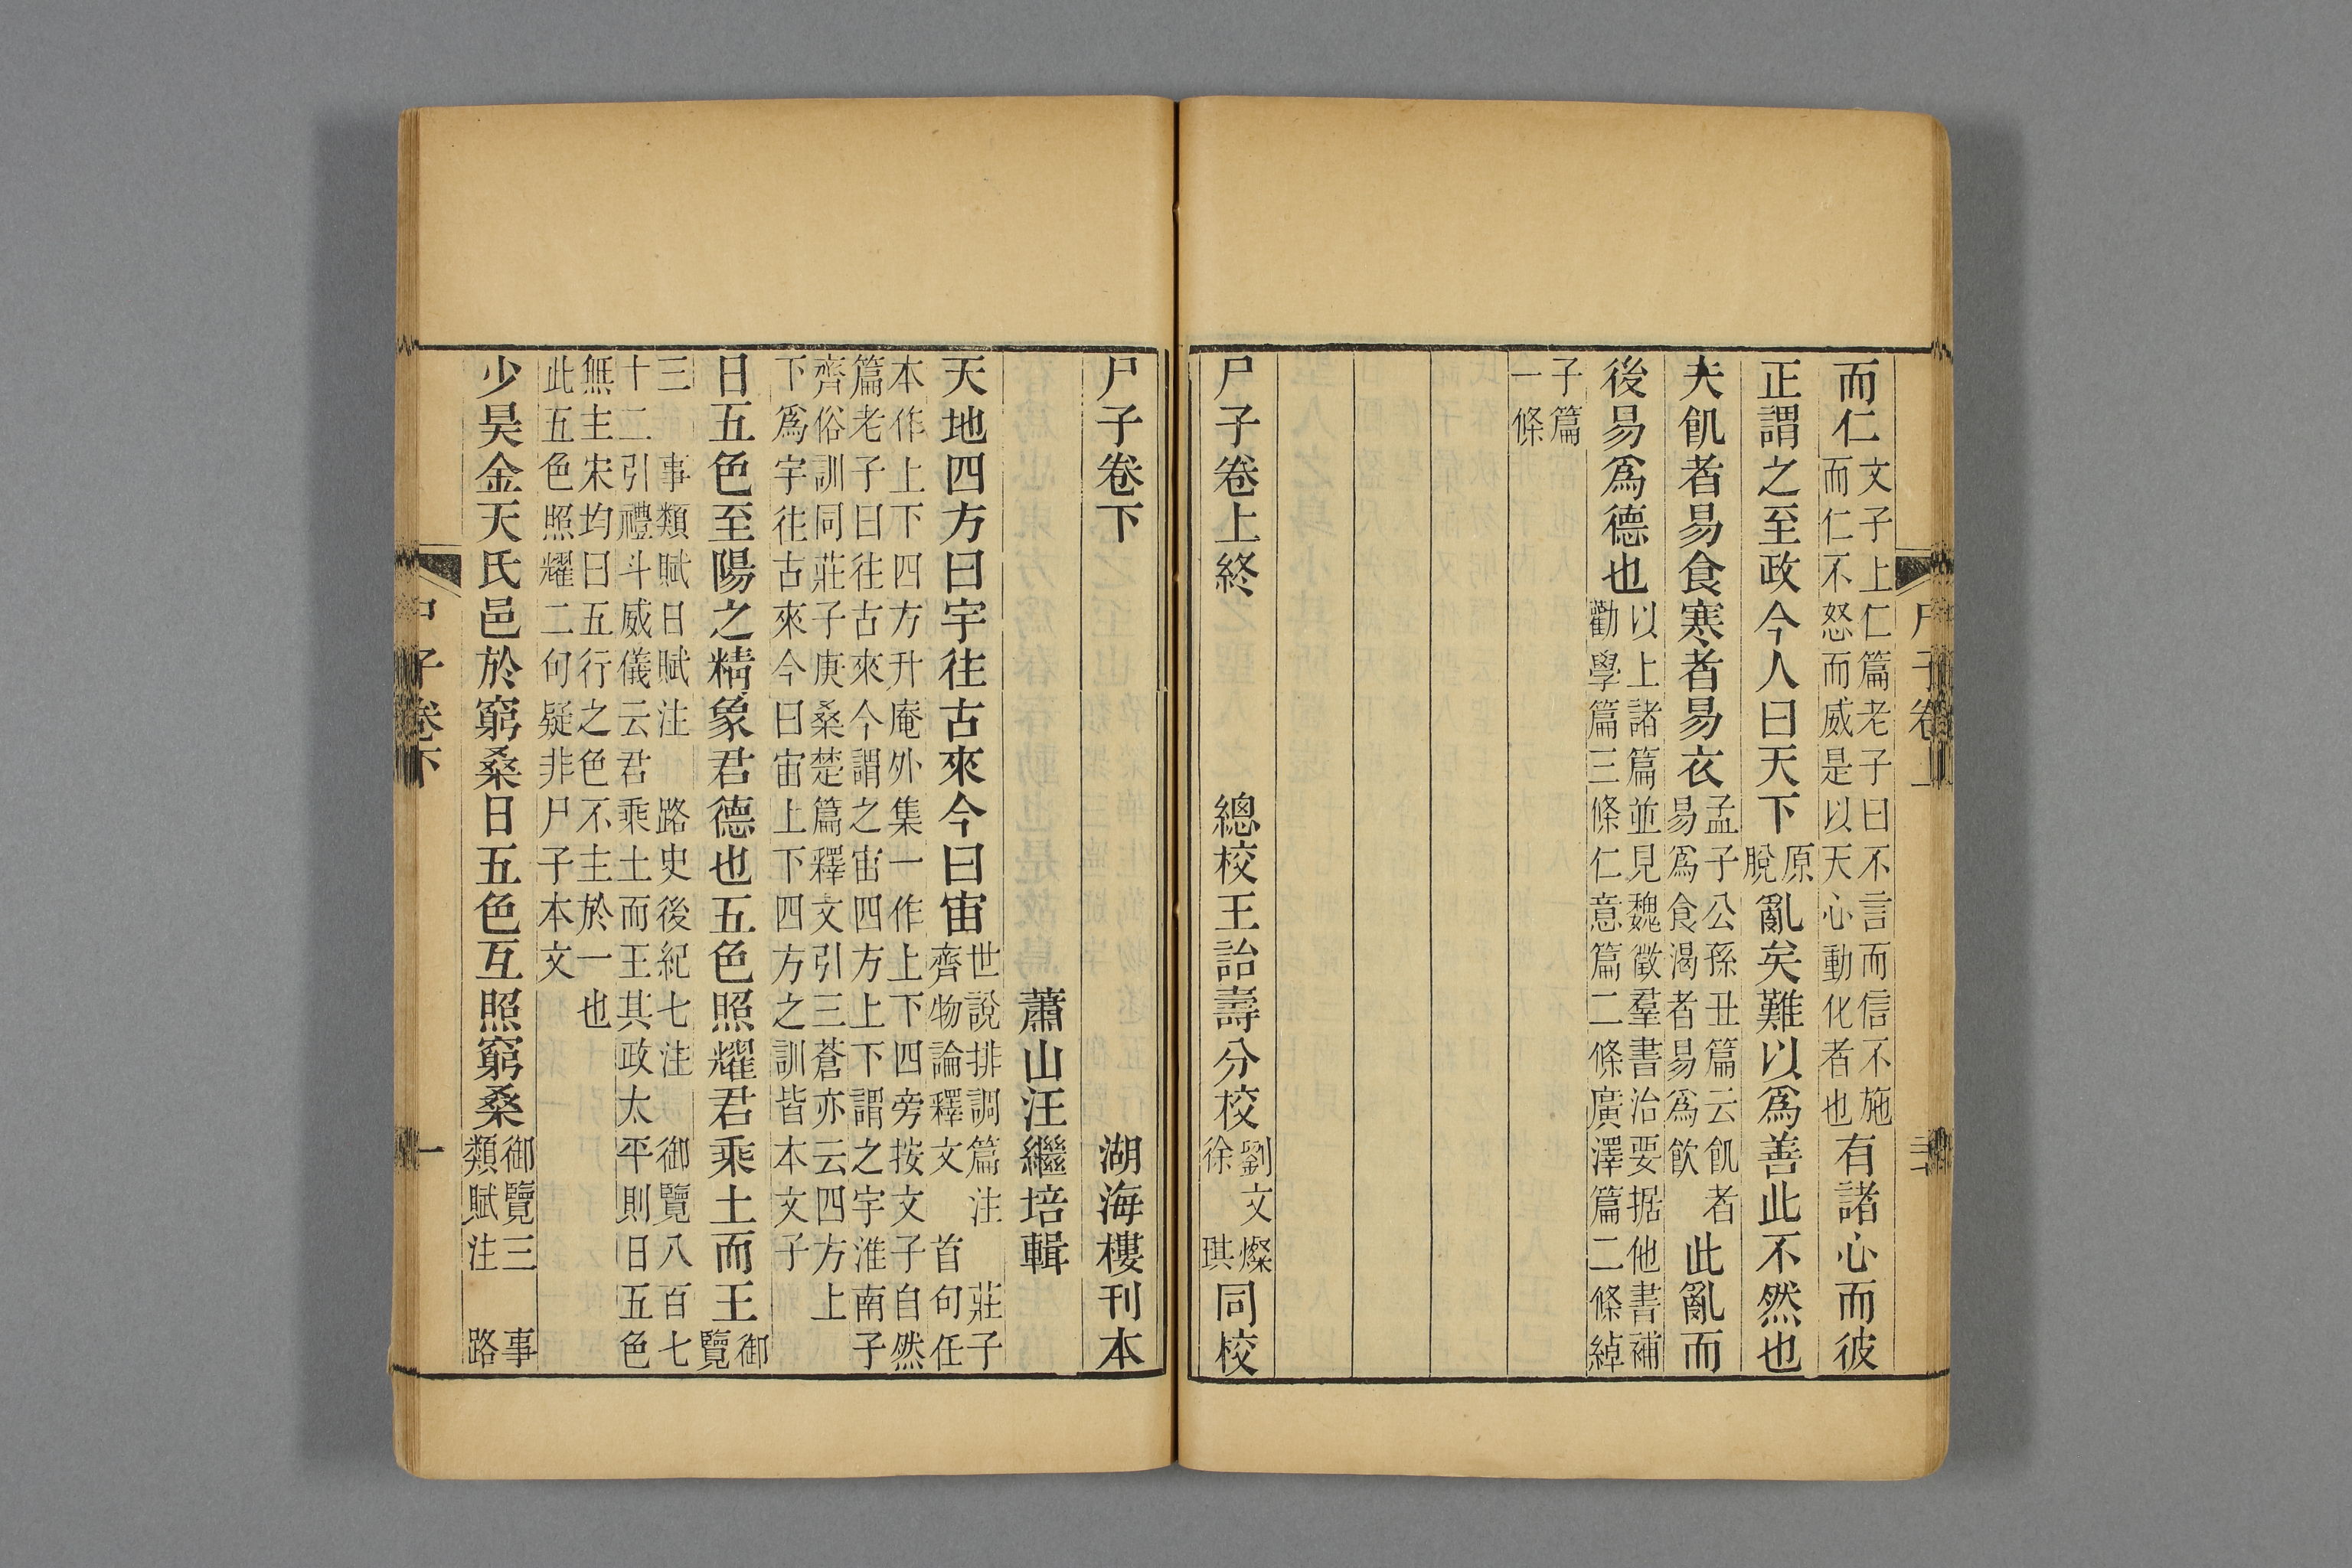 尸子卷
而仁
文子上仁篇老子曰不言而信不施
而仁不怒而威是以天心動化者也
有諸心而彼
正謂之至政今人曰天下
原
脫
亂矣難以爲善此不然也
夫飢者易食寒者易衣
孟子公孫丑篇云飢者
易爲食渴者易爲飲
此亂而
後易爲德也
以上諸篇並見魏徵羣書治要据他書補
勸學篇三條仁意篇二條廣澤篇二條綽
子篇
一條
尸子卷上終
總校王詒壽分校
劉文燦
徐琪
同校
尸子卷下
湖海樓刊本
蕭山汪繼培輯
天地四方曰宇往古來今曰宙
世說排調篇注 莊子
齊物論釋文 首句任
本作上下四方升庵外集一作上下四旁按文子自然
篇老子曰往古來今謂之宙四方上下謂之宇淮南子
齊俗訓同莊子庚桑楚篇釋文引三蒼亦云四方上
下爲宇往古來今曰宙上下四方之訓皆本文子
日五色至陽之精象君德也五色照耀君乘土而王
御
覽
三 事類賦日賦注 路史後紀七注 御覽八百七
十二引禮斗威儀云君乘土而王其政太平則日五色
無主宋均曰五行之色不主於一也
此五色照耀二句疑非尸子本文
少昊金天氏邑於窮桑日五色互照窮桑
御覽三 事
類賦注 路
尸子卷下
一